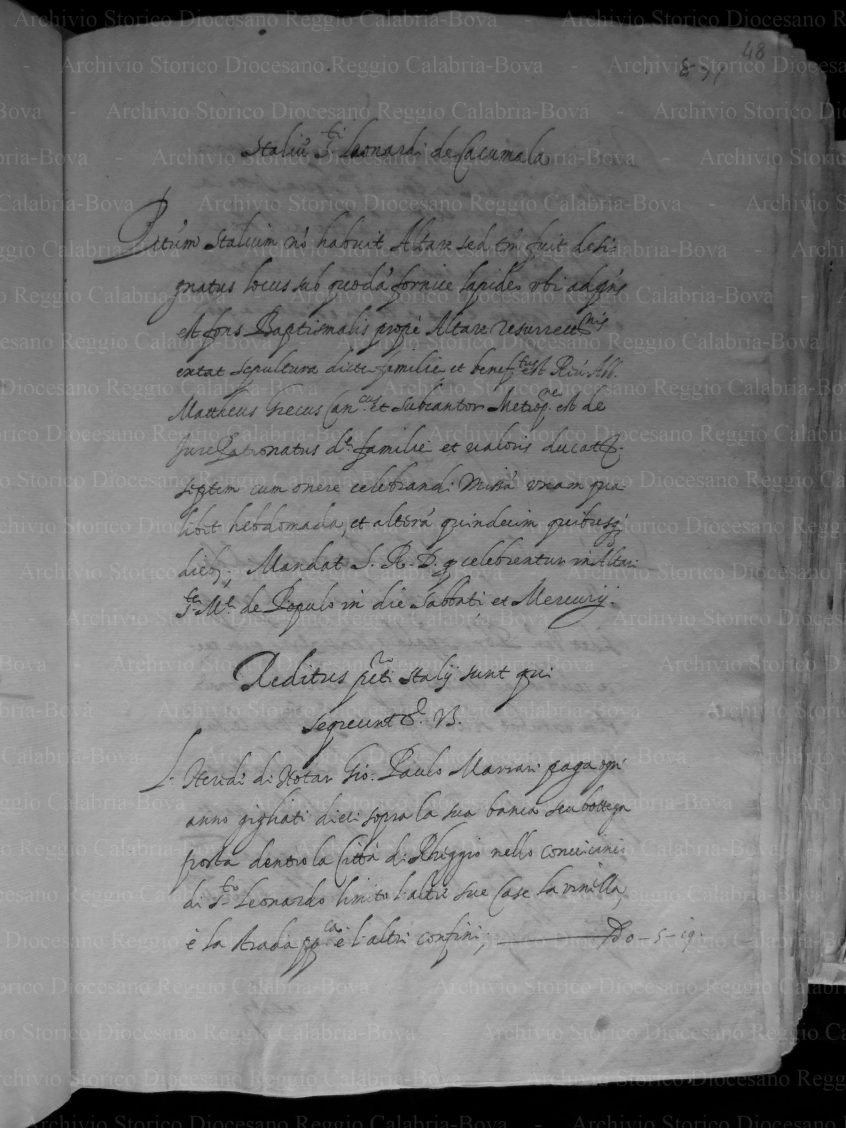 48
Staliū S.ti Leonardi de Cacumala
Pttūm Stalium nō habuit Altare sed tm̄ fuit desi-
gnatus locus sub quodā fornice lapideo ubi ad p̄ns
est fons Baptismalis prope Altare resurrect.nis
extat sepultura dicte familie et benef.tus est R.du Abb.
Mattheus Grecus Can.cus et Subcantor Metrop.ne est de
Jure Patronatus d.e familie et valoris ducat
septem cum onere celebrandi Missā unam qua
libet hebdomada, et alterā quindecim quibusq;
dieb;, Mandat S. R. D. q celebrentur in Altari
S.te M.e de Populo in die Sabbati et Mercurij.
Reditus p̄tti Stalij sunt qui
sequunt.r V3.
L. Heredi di Notar Gio. Paulo Marrari paga ogni
anno gigliati dieci sopra la sua banca seu bottega
posta dentro la Città di Rheggio nello convicinio
di S.to Leonardo limito l'altre sue Case la vinella,
è la strada pp.ca è l'altri confini, D 0-5-19.